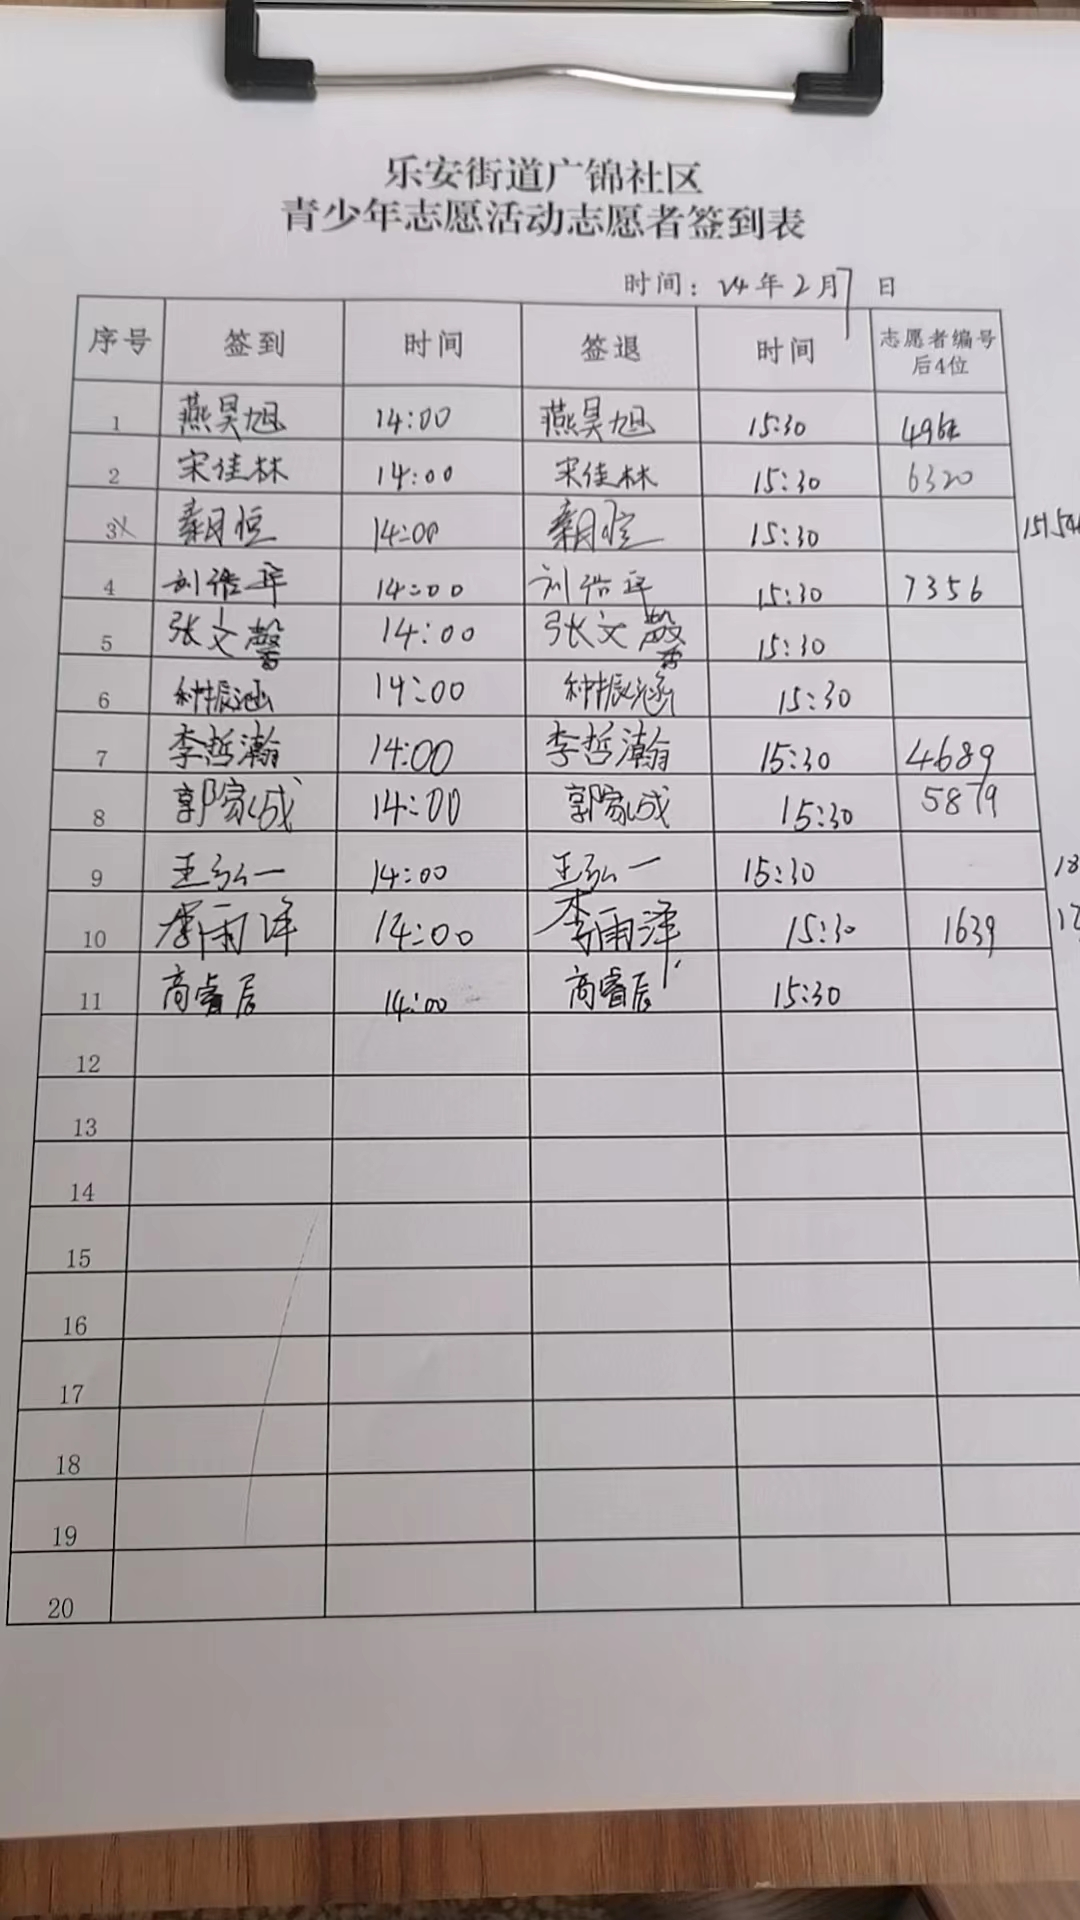 乐安街道广锦社区
青少年志愿活动志愿者签到表
时间：24年2月7日
序号 签到 时间 签退 时间 志愿者编号后4位
1 燕昊旭 14:00 燕昊旭 15:30
2 宋佳林 14:00 宋佳林 15:30 6320
3 14:00 15:30
4 刘浩宇 14:00 刘浩宇 15:30 7356
5 张文馨 14:00 张文馨 15:30
6 种振涵 14:00 种振涵 15:30
7 李哲瀚 14:00 李哲瀚 15:30 4689
8 郭家成 14:00 郭家成 15:30 5879
9 王弘一 14:00 王弘一 15:30 18
10 李雨泽 14:00 李雨泽 15:30 1639
11 商睿辰 14:00 商睿辰 15:30
12
13
14
15
16
17
18
19
20